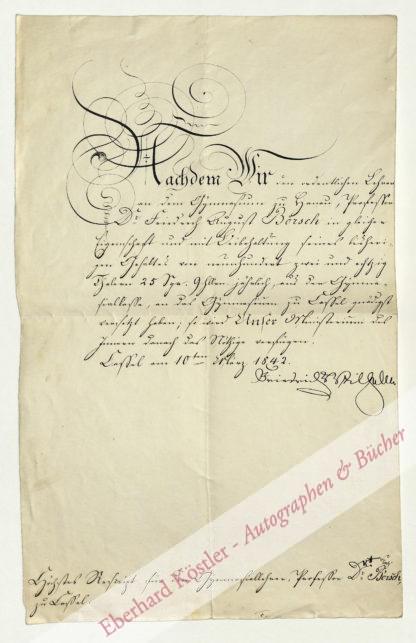 Nachdem Wir den ordentlichen Lehrer
an dem Gymnasium zu Hanau, Professor
Dr. Friedrich August Börsch in gleicher
Eigenschaft und mit Beibehaltung seines bisheri-
gen Gehaltes von neunhundert zwei und achtzig
Thalern 25 Sgr. 9 Hllr. jährlich, aus der Gymna-
sialkasse, an das Gymnasium zu Cassel gnädigst
versetzt haben; so wird Unser Ministerium des
Innern danach das Nöthige verfügen.
Cassel am 10ten März 1842.
Friedrich Wilhelm
Höchstes Rescript für den Gymnasiallehrer, Professor Dr. Börsch,
zu Cassel.
Eberhard Köstler - Autographen & Bücher